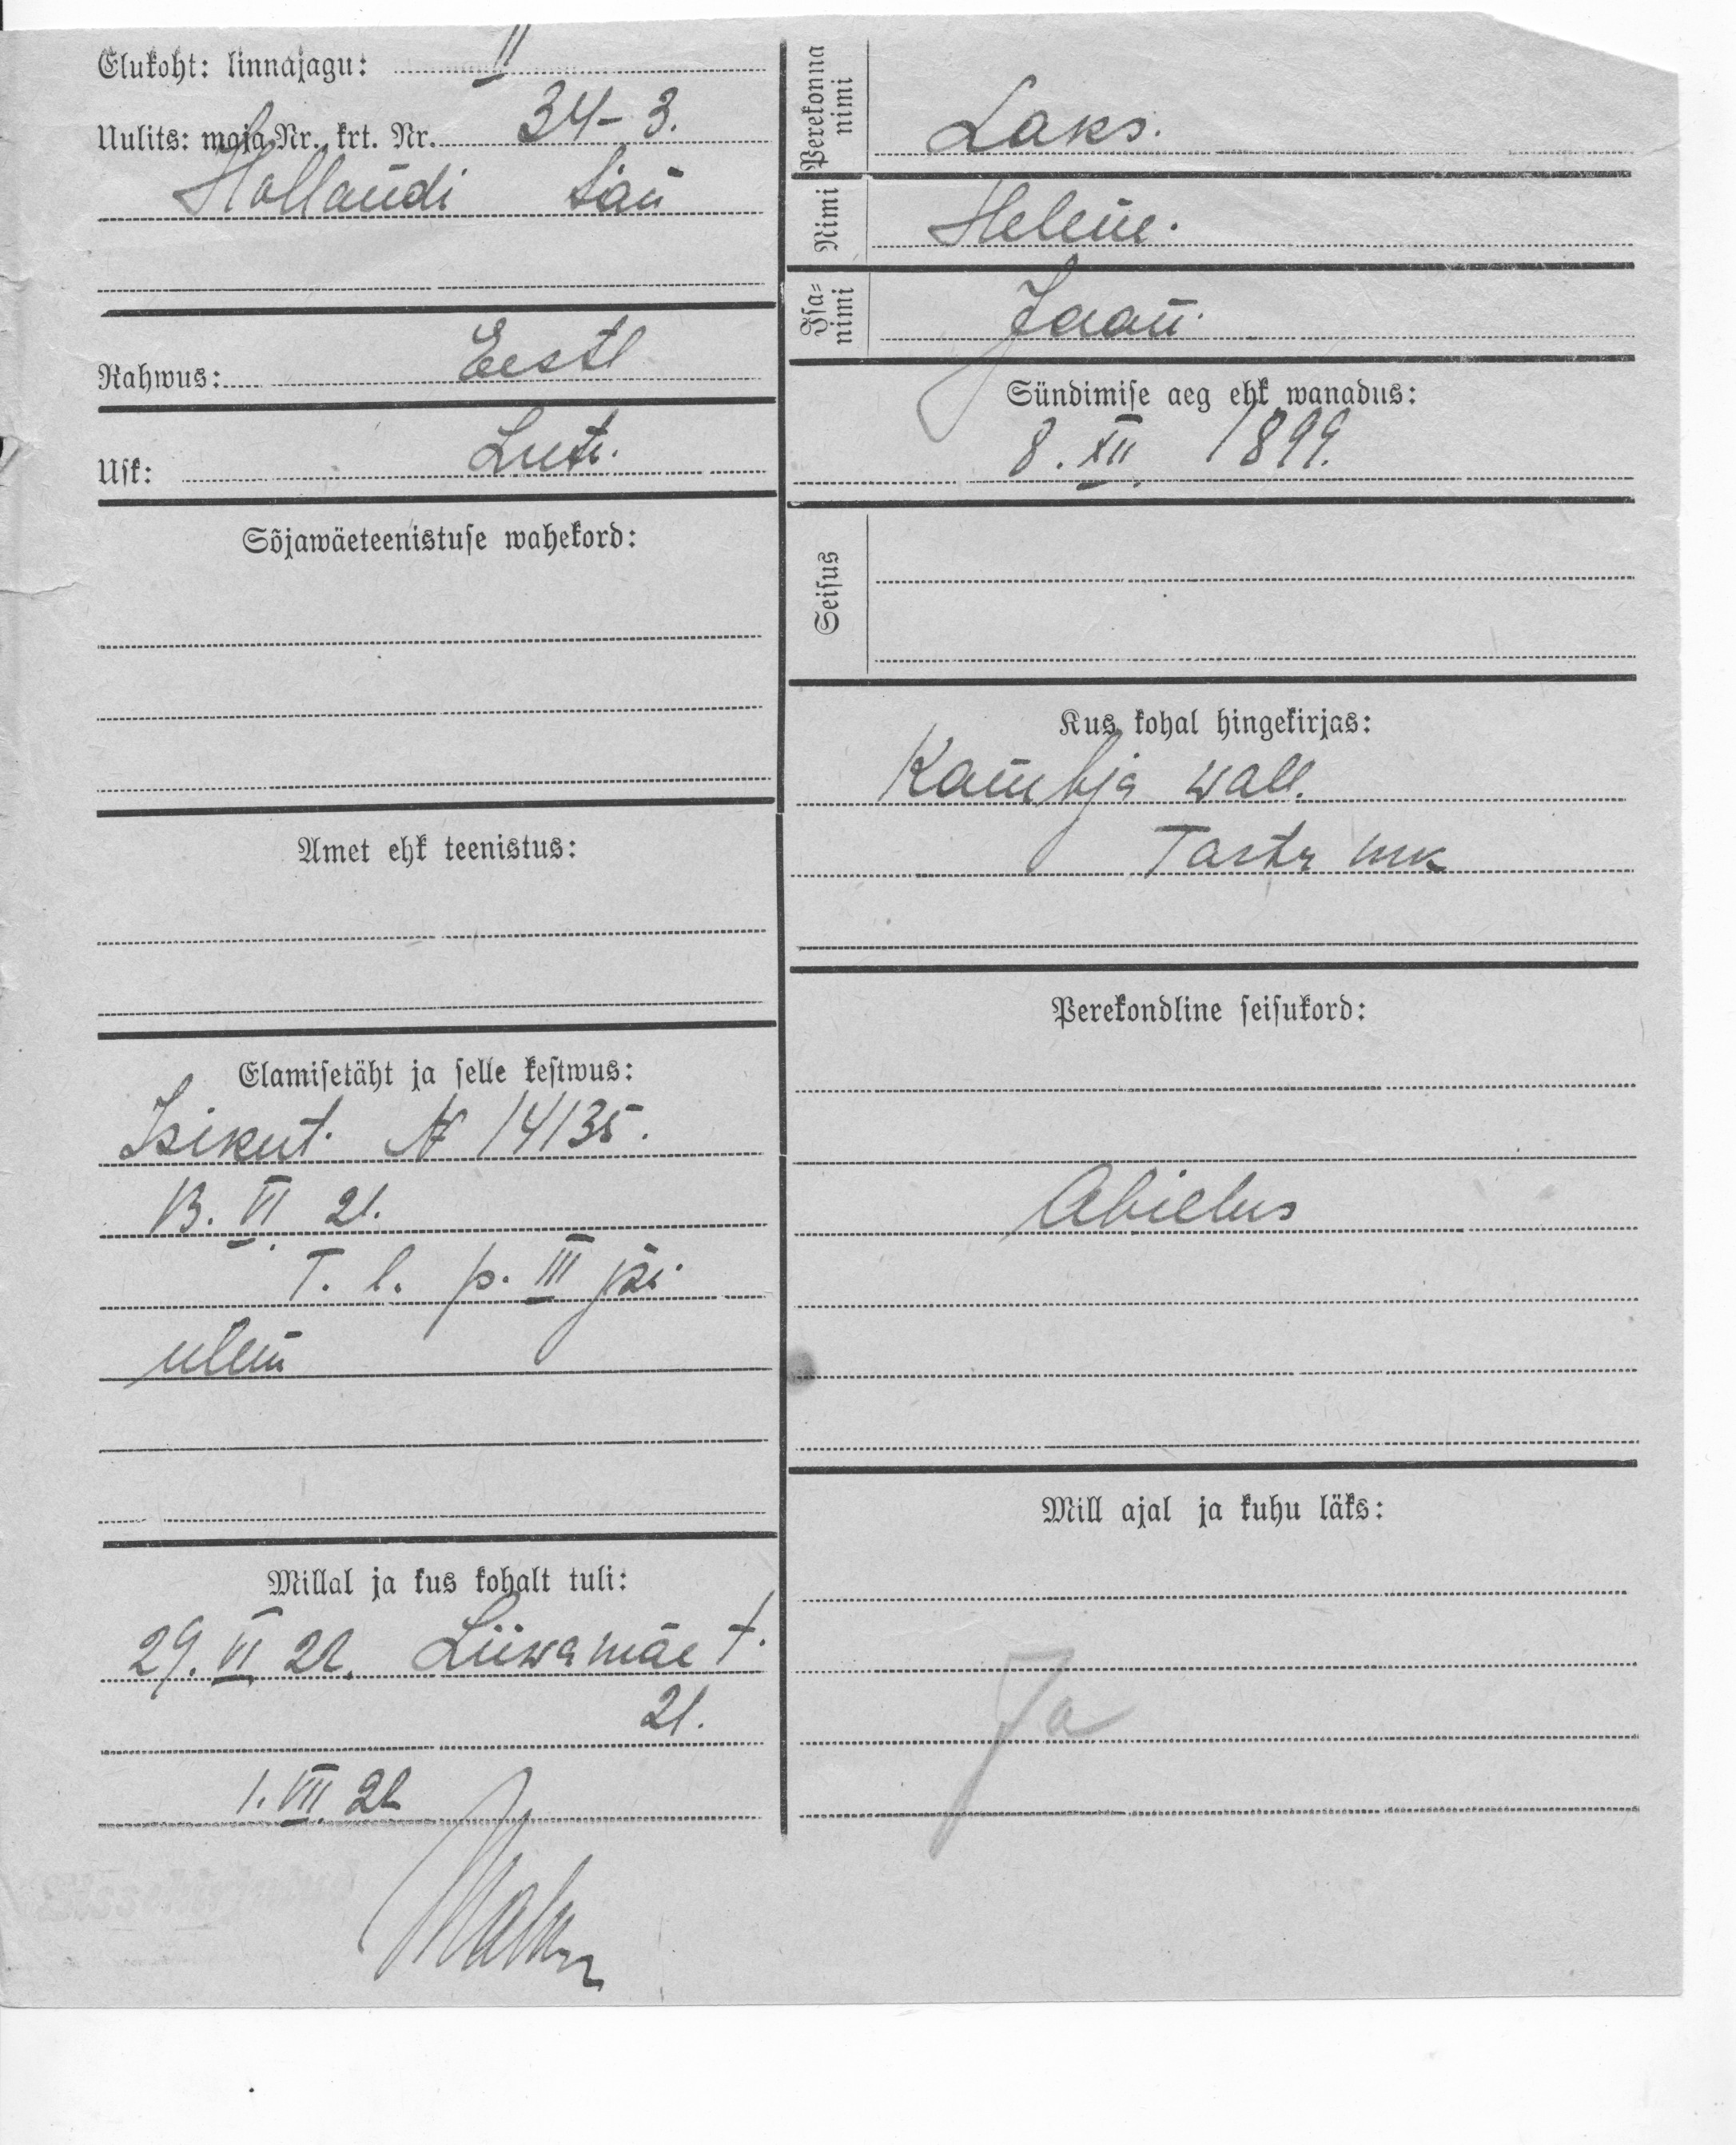 Elukoht: linnajagu: II
Uulits: maja Nr. krt. Nr. 34-3.
Hollandi tän
Rahwus: Eestl
Usk: Lut.
Sõjawäeteenistuse wahekord:
Amet ehk teenistus:
Elamisetäht ja selle kestwus:
Isikut. № 14135.
13. VI 21.
T. l. p. III jsk.
ülem
Millal ja kus kohalt tuli:
29. VI 22. Liiwamäe t.
21.
1. VII 22
Perekonna nimi
Laks.
Nimi
Helene.
Isa-nimi
Jaan.
Sündimise aeg ehk wanadus:
8. XII 1899.
Seisus
Kus kohal hingekirjas:
Kambja wall.
Tartu mk
Perekondline seisukord:
Abielus
Mill ajal ja kuhu läks:
Ja